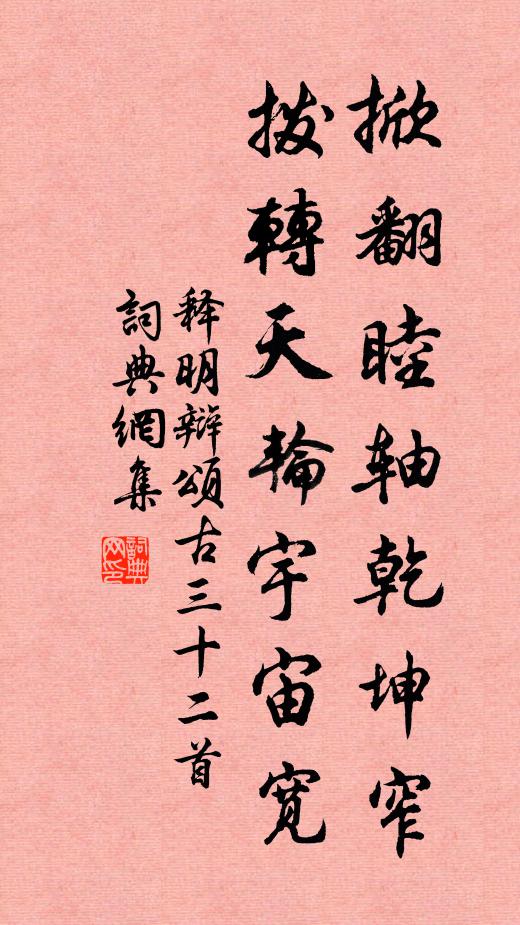 掀翻睦轴乾坤窄
拨轉天輪宇宙宽
释明辩頌古三十二首
詞典網集
詞典网印